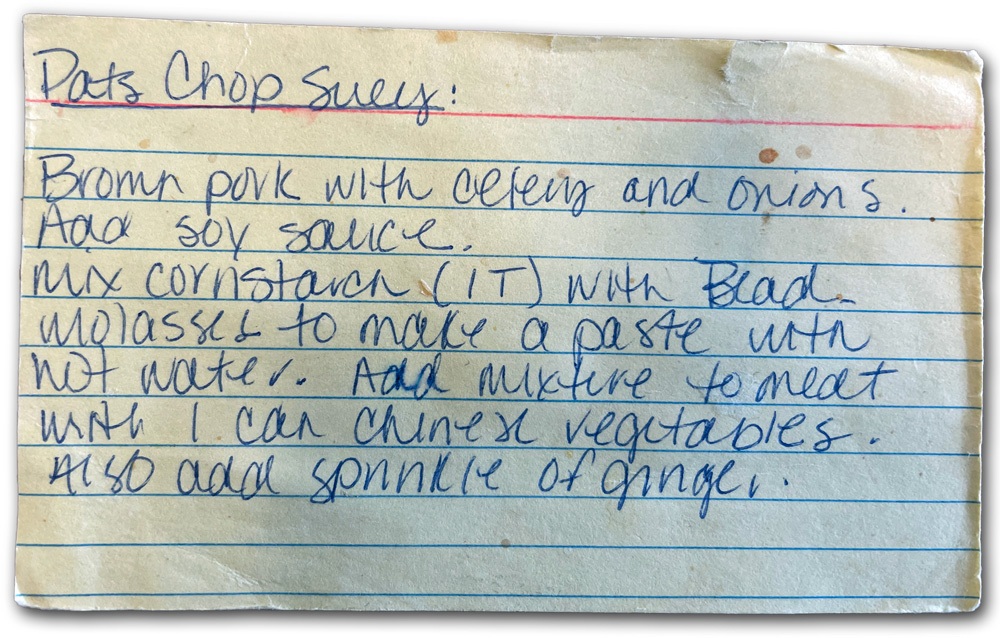 Pats Chop Suey:
Brown pork with celery and onions.
Add soy sauce.
Mix cornstarch (1T) with Bead
Molasses to make a paste with
hot water. Add mixture to meat
with 1 can chinese vegetables.
Also add sprinkle of ginger.